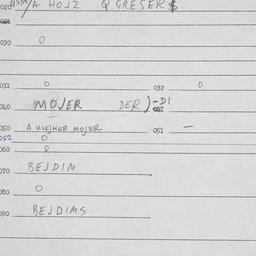 020 A HOJZ Q GRESER $
022
030 0
031 0 032 0
040 MOJER DER) -DI
050 A KLEJNER MOJER 051 -
052 0
060 0
070 BEJDIM
080 0
090 BEJDIMS